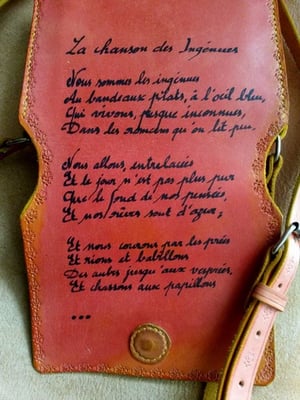 La chanson des Ingénues
Nous sommes les ingénues
Au bandeaux plats, à l'oeil bleu,
Qui vivons, presque inconnues,
Dans les romans qu'on lit peu.
Nous allons, entrelacées
Et le jour n'est pas plus pur
Que le fond de nos pensées,
Et nos rêves sont d'azur;
Et nous courons par les prées
Et rions et babillons
Des aubes jusqu'aux vesprées,
Et chassons aux papillons
...